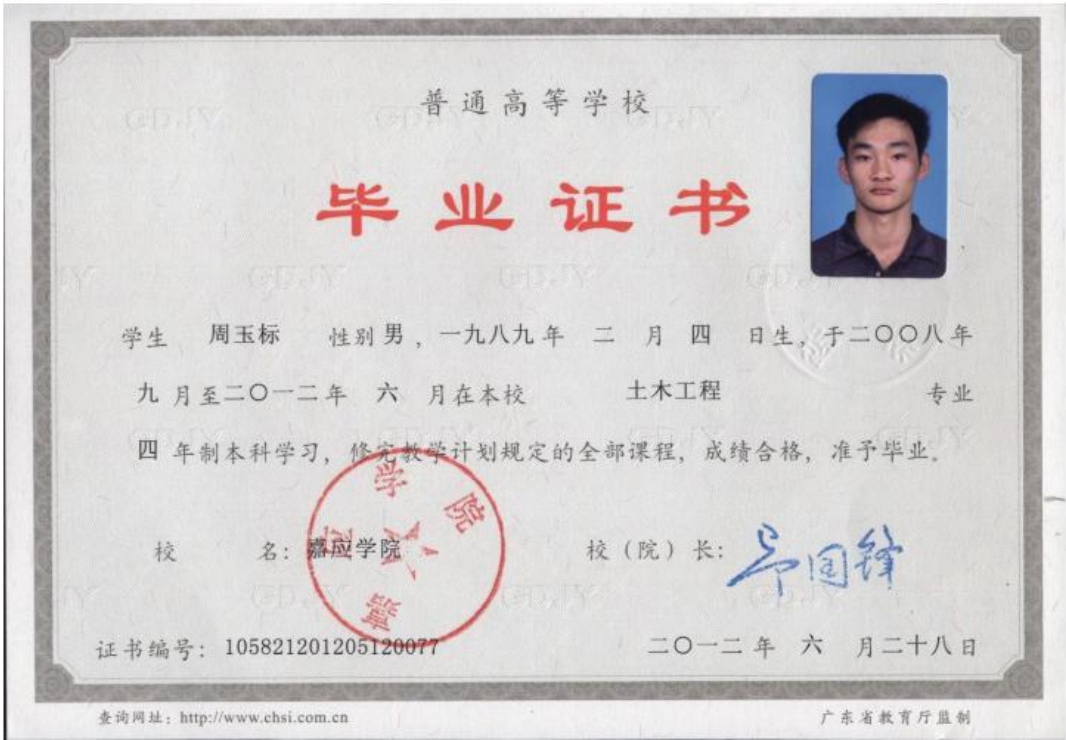 普通高等学校
毕业证书
学生 周玉标 性别 男 ，一九八九 年 二 月 四 日生，于二〇〇八年
九 月至二〇一二年 六 月在本校 土木工程 专业
四 年制本科学习，修完教学计划规定的全部课程，成绩合格，准予毕业。
校 名：嘉应学院 校（院）长：
嘉应学院
证书编号：105821201205120077 二〇一二 年 六 月二十八日
查询网址：http://www.chsi.com.cn 广东省教育厅监制